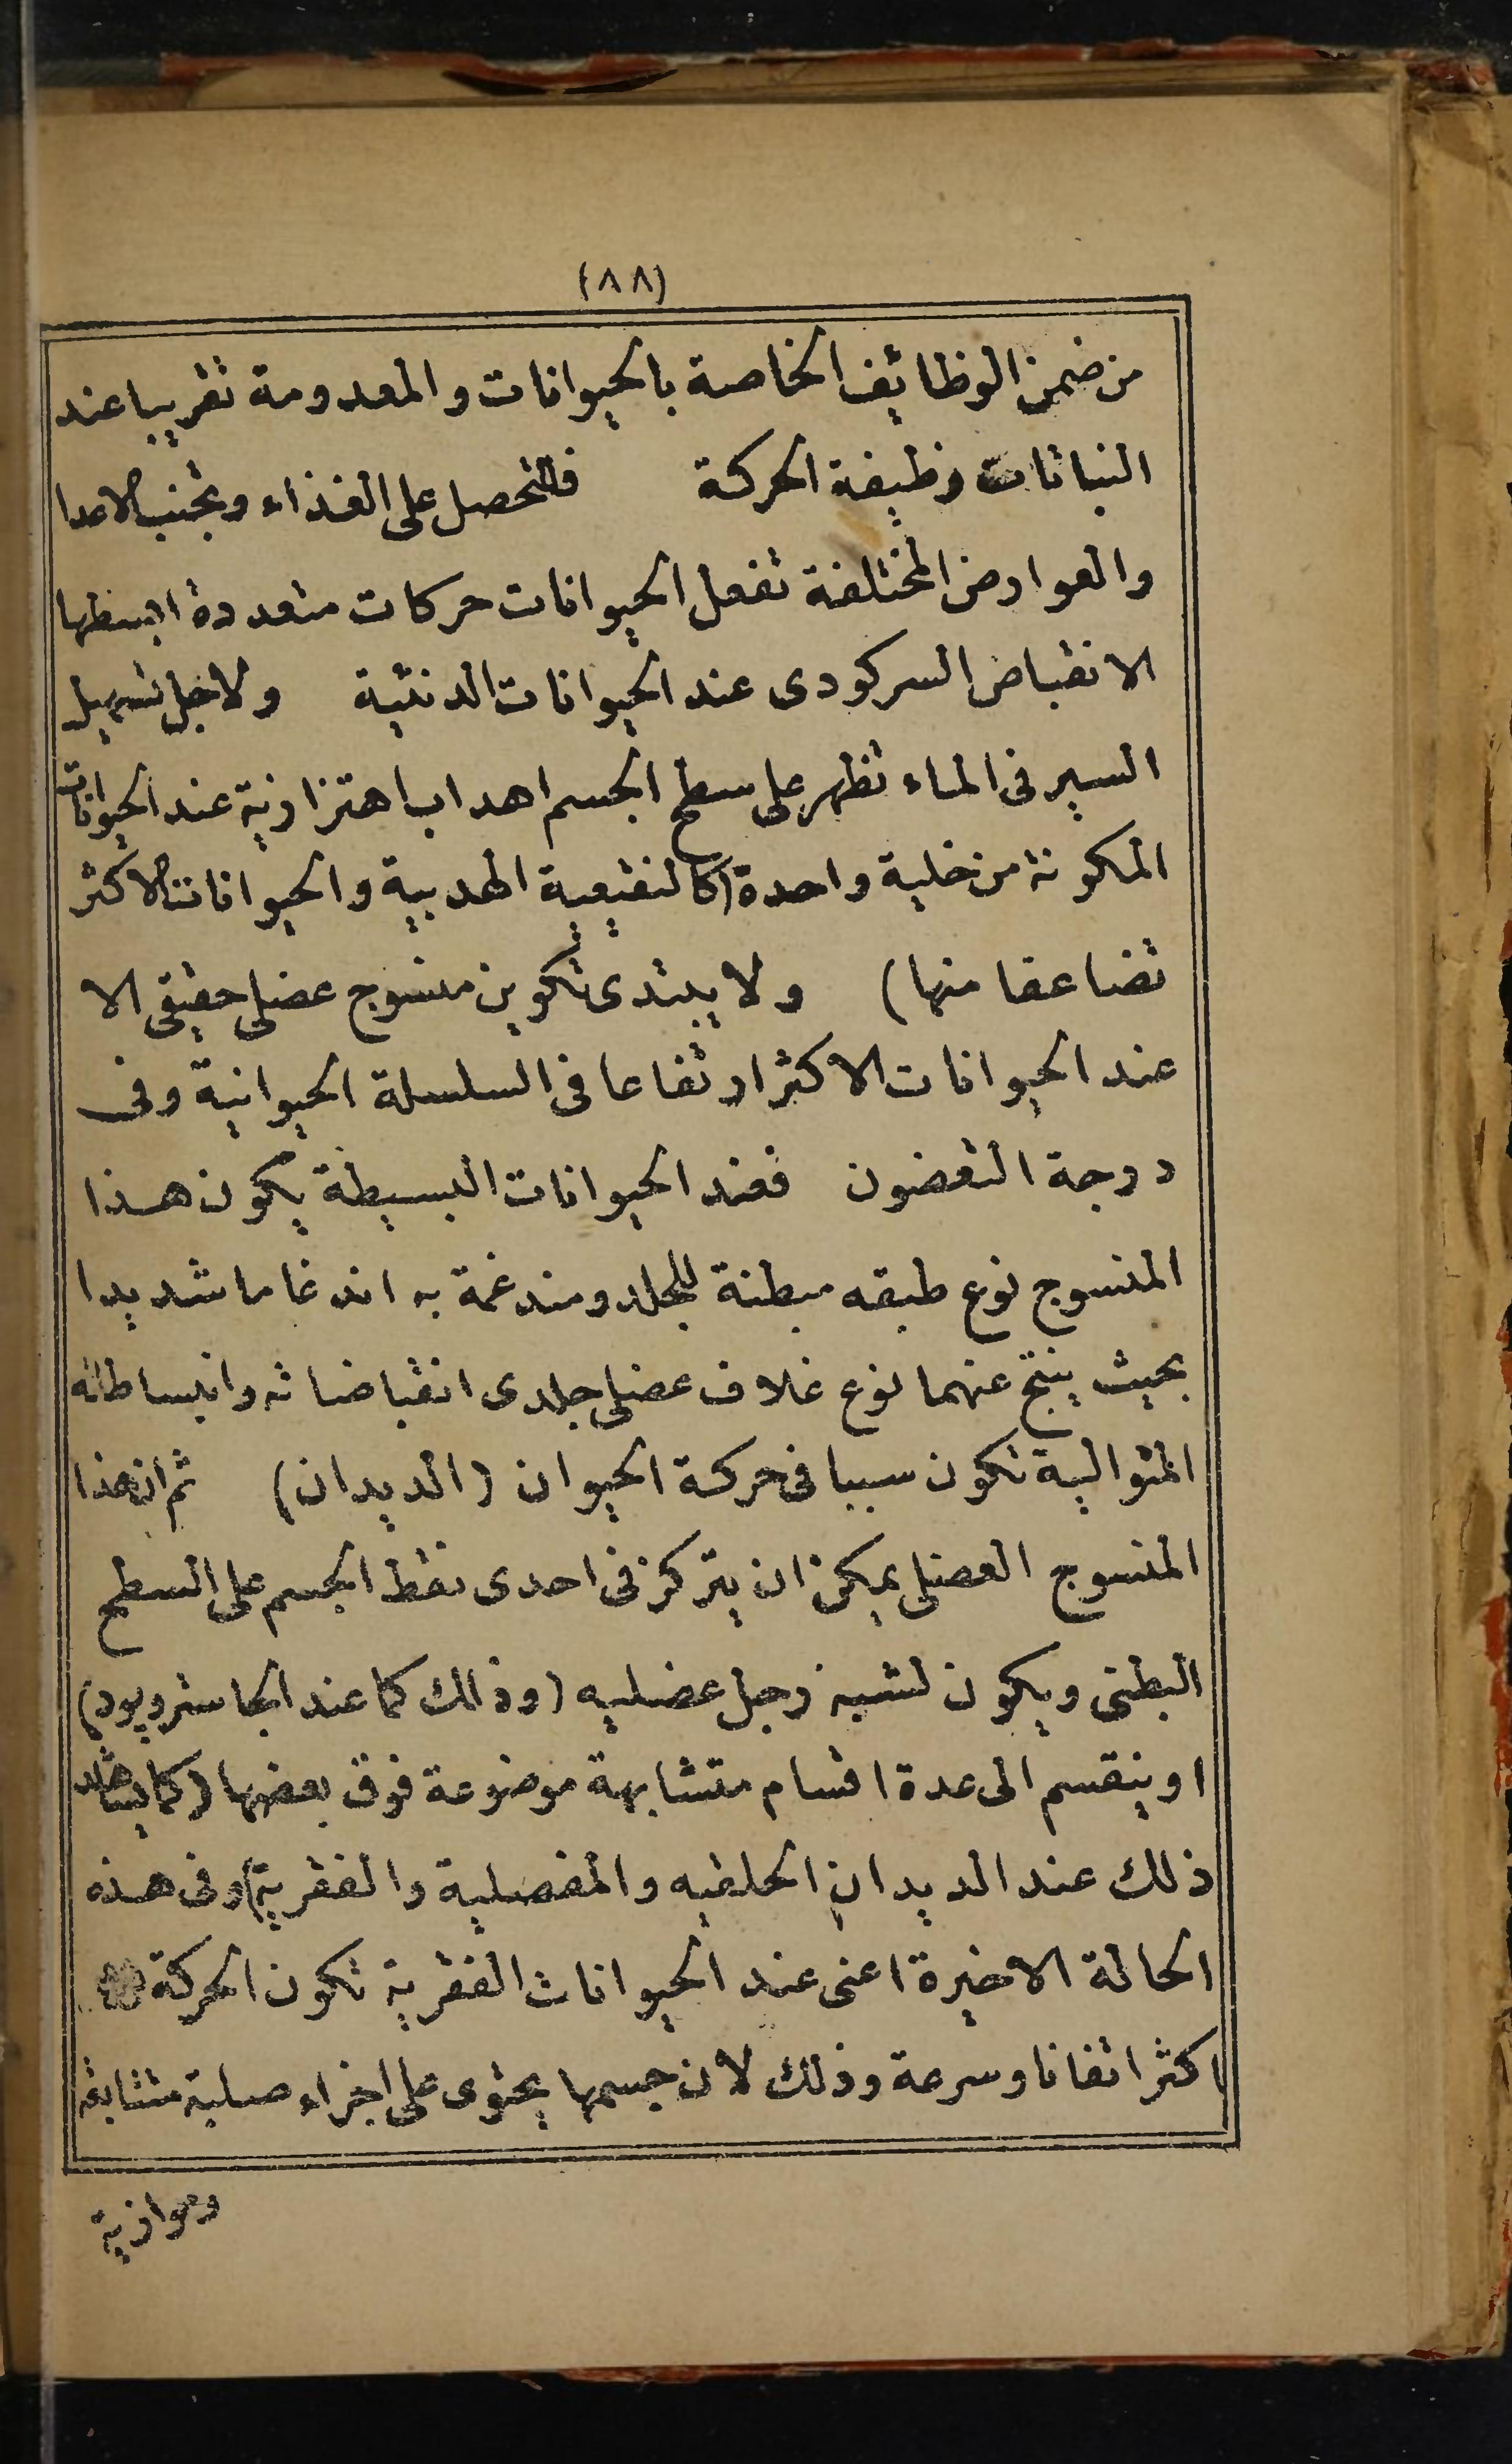 (٨٨)
من ضمن الوظائف الخاصة بالحيوانات والمعدومة تقريبا عند
النباتات وظيفة الحركة فالتحصل على الغذاء وتجنب الاعدا
والعوارض المختلفة تفعل الحيوانات حركات متعددة ابسطها
الانقباض السركودى عند الحيوانات الدنئية ولاجل تسهيل
السير فى الماء تظهر على سطح الجسم اهداب اهتزازية عند الحيوانات
المكونة من خلية واحدة (كالنقيعية الهدبية والحيوانات الاكثر
تضاعفا منها) ولا يبتدى تكوين منسوج عضلى حقيقى الا
عند الحيوانات الاكثر ارتفاعا فى السلسلة الحيوانية وفى
درجة التعضون فعند الحيوانات البسيطة يكون هذا
المنسوج نوع طبقه مبطنة للجلد ومندغمة به اندغاما شديدا
بحيث ينتج عنهما نوع غلاف عضلى جلدى انقباضاته وانبساطاته
المتوالية تكون سببا فى حركة الحيوان (الديدان) ثم ان هذا
المنسوج العضلى يمكن ان يتركز فى احدى نقط الجسم على السطح
البطنى ويكون لشبه رجل عضليه (وذلك كما عند الجاستروبود)
او ينقسم الى عدة اقسام متشابهة موضوعة فوق بعضها (كما يشاهد
ذلك عند الديدان الحلقيه والمفصلية والفقرية) وفى هذه
الحالة الاخيرة اعنى عند الحيوانات الفقرية تكون الحركة
اكثر اتقانا وسرعة وذلك لان جسمها يحتوى على اجزاء صلبة متتابعه
وموازية